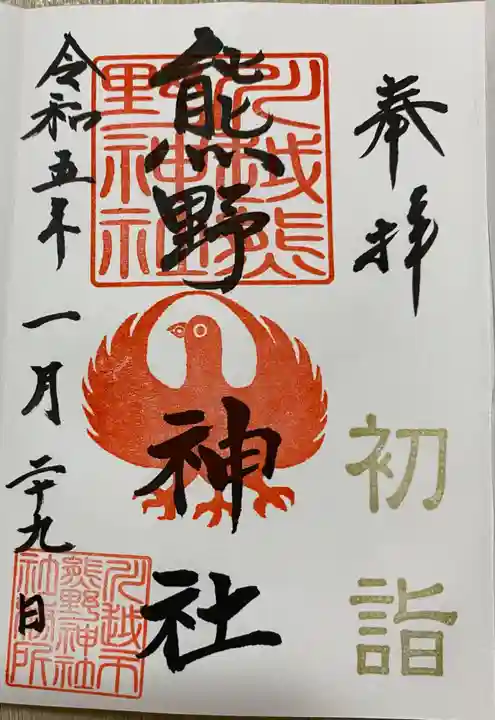 奉拝
初詣
熊野神社
川越熊
野神社
令和五年一月二十九日
川越市
熊野神社
社務所